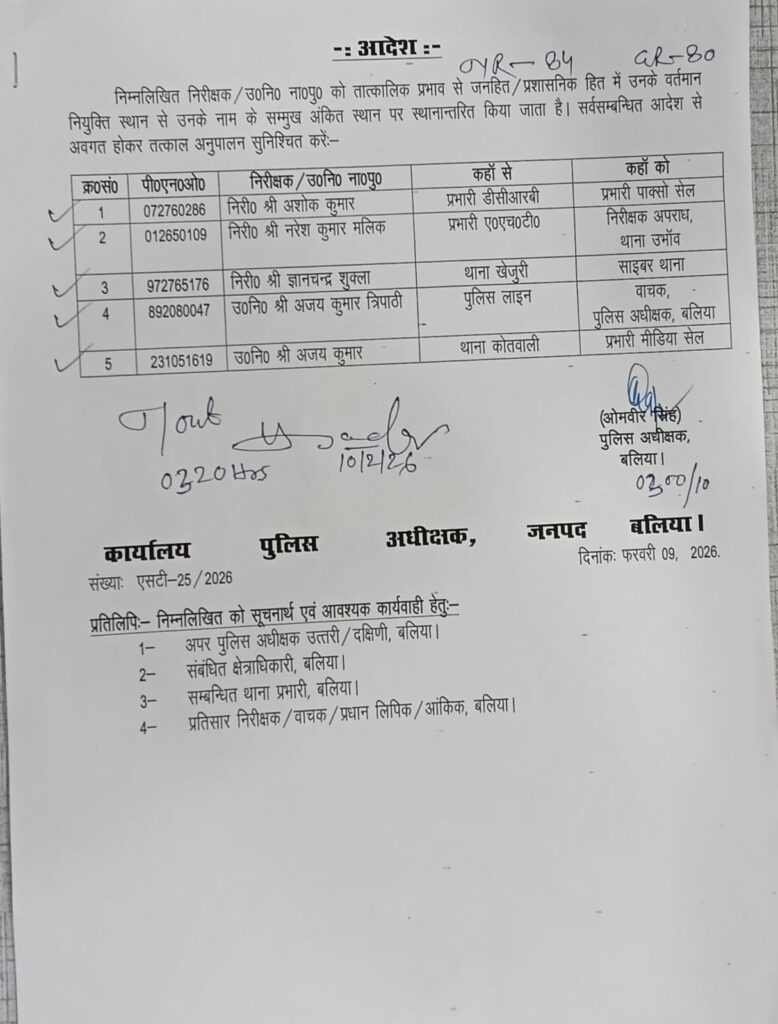 -: आदेश :-
GR-80
निम्नलिखित निरीक्षक/उ0नि0 ना0पु0 को तात्कालिक प्रभाव से जनहित/प्रशासनिक हित में उनके वर्तमान
नियुक्ति स्थान से उनके नाम के सम्मुख अंकित स्थान पर स्थानान्तरित किया जाता है। सर्वसम्बन्धित आदेश से
अवगत होकर तत्काल अनुपालन सुनिश्चित करें:–
क्र0सं0 पी0एन0ओ0 निरीक्षक/उ0नि0 ना0पु0 कहॉ से कहॉ को
1 072760286 निरी0 श्री अशोक कुमार प्रभारी डीसीआरबी प्रभारी पाक्सो सेल
2 012650109 निरी0 श्री नरेश कुमार मलिक प्रभारी ए0एच0टी0 निरीक्षक अपराध,
थाना उभॉव
3 972765176 निरी0 श्री ज्ञानचन्द्र शुक्ला थाना खेजुरी साइबर थाना
4 892080047 उ0नि0 श्री अजय कुमार त्रिपाठी पुलिस लाइन वाचक,
पुलिस अधीक्षक, बलिया
5 231051619 उ0नि0 श्री अजय कुमार थाना कोतवाली प्रभारी मीडिया सेल
0320 Hrs
10/2/26
(ओमवीर सिंह)
पुलिस अधीक्षक,
बलिया।
0300/10
कार्यालय पुलिस अधीक्षक, जनपद बलिया।
संख्याः एसटी–25/2026 दिनांकः फरवरी 09, 2026.
प्रतिलिपिः– निम्नलिखित को सूचनार्थ एवं आवश्यक कार्यवाही हेतुः–
1– अपर पुलिस अधीक्षक उत्तरी/दक्षिणी, बलिया।
2– संबंधित क्षेत्राधिकारी, बलिया।
3– सम्बन्धित थाना प्रभारी, बलिया।
4– प्रतिसार निरीक्षक/वाचक/प्रधान लिपिक/आंकिक, बलिया।